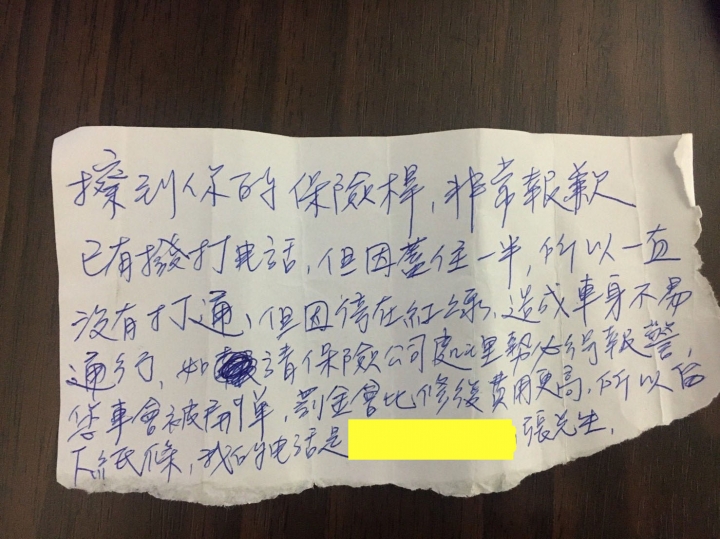 擦到你的保險桿,非常報歉
已有撥打电話,但因蓋住一半,所以一直
沒有打通,但因停在紅線,造成車身不易
通行,如請保險公司處理勢必得報警,
您車會被開單,罰金會比修復費用更高,所以留
下紙條,我的电話是 張先生.